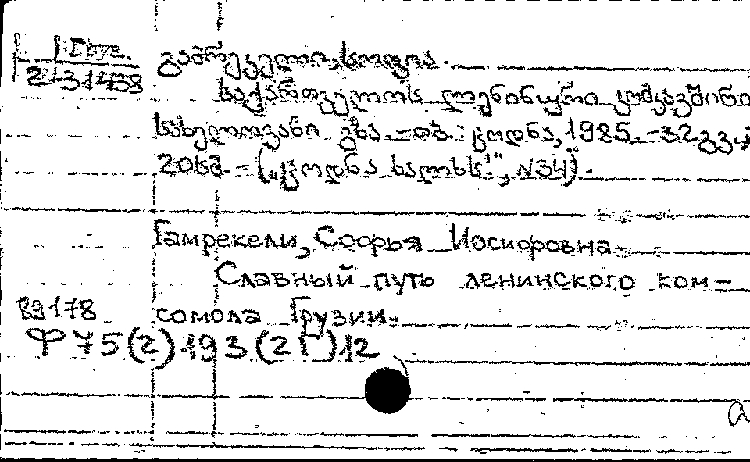 გამრეკელი, სოფია.
საქართველოს ლენინური კომკავშირის
სახელოვანი გზა. – თბ.: ცოდნა, 1985. – 32 გვ.;
20სმ. – („ცოდნა ხალხს“, N34).
Гамрекели, Софья Иосифовна.
Славный путь ленинского ком-
сомола Грузии.
89178
Ф75(2)193(2Г)12